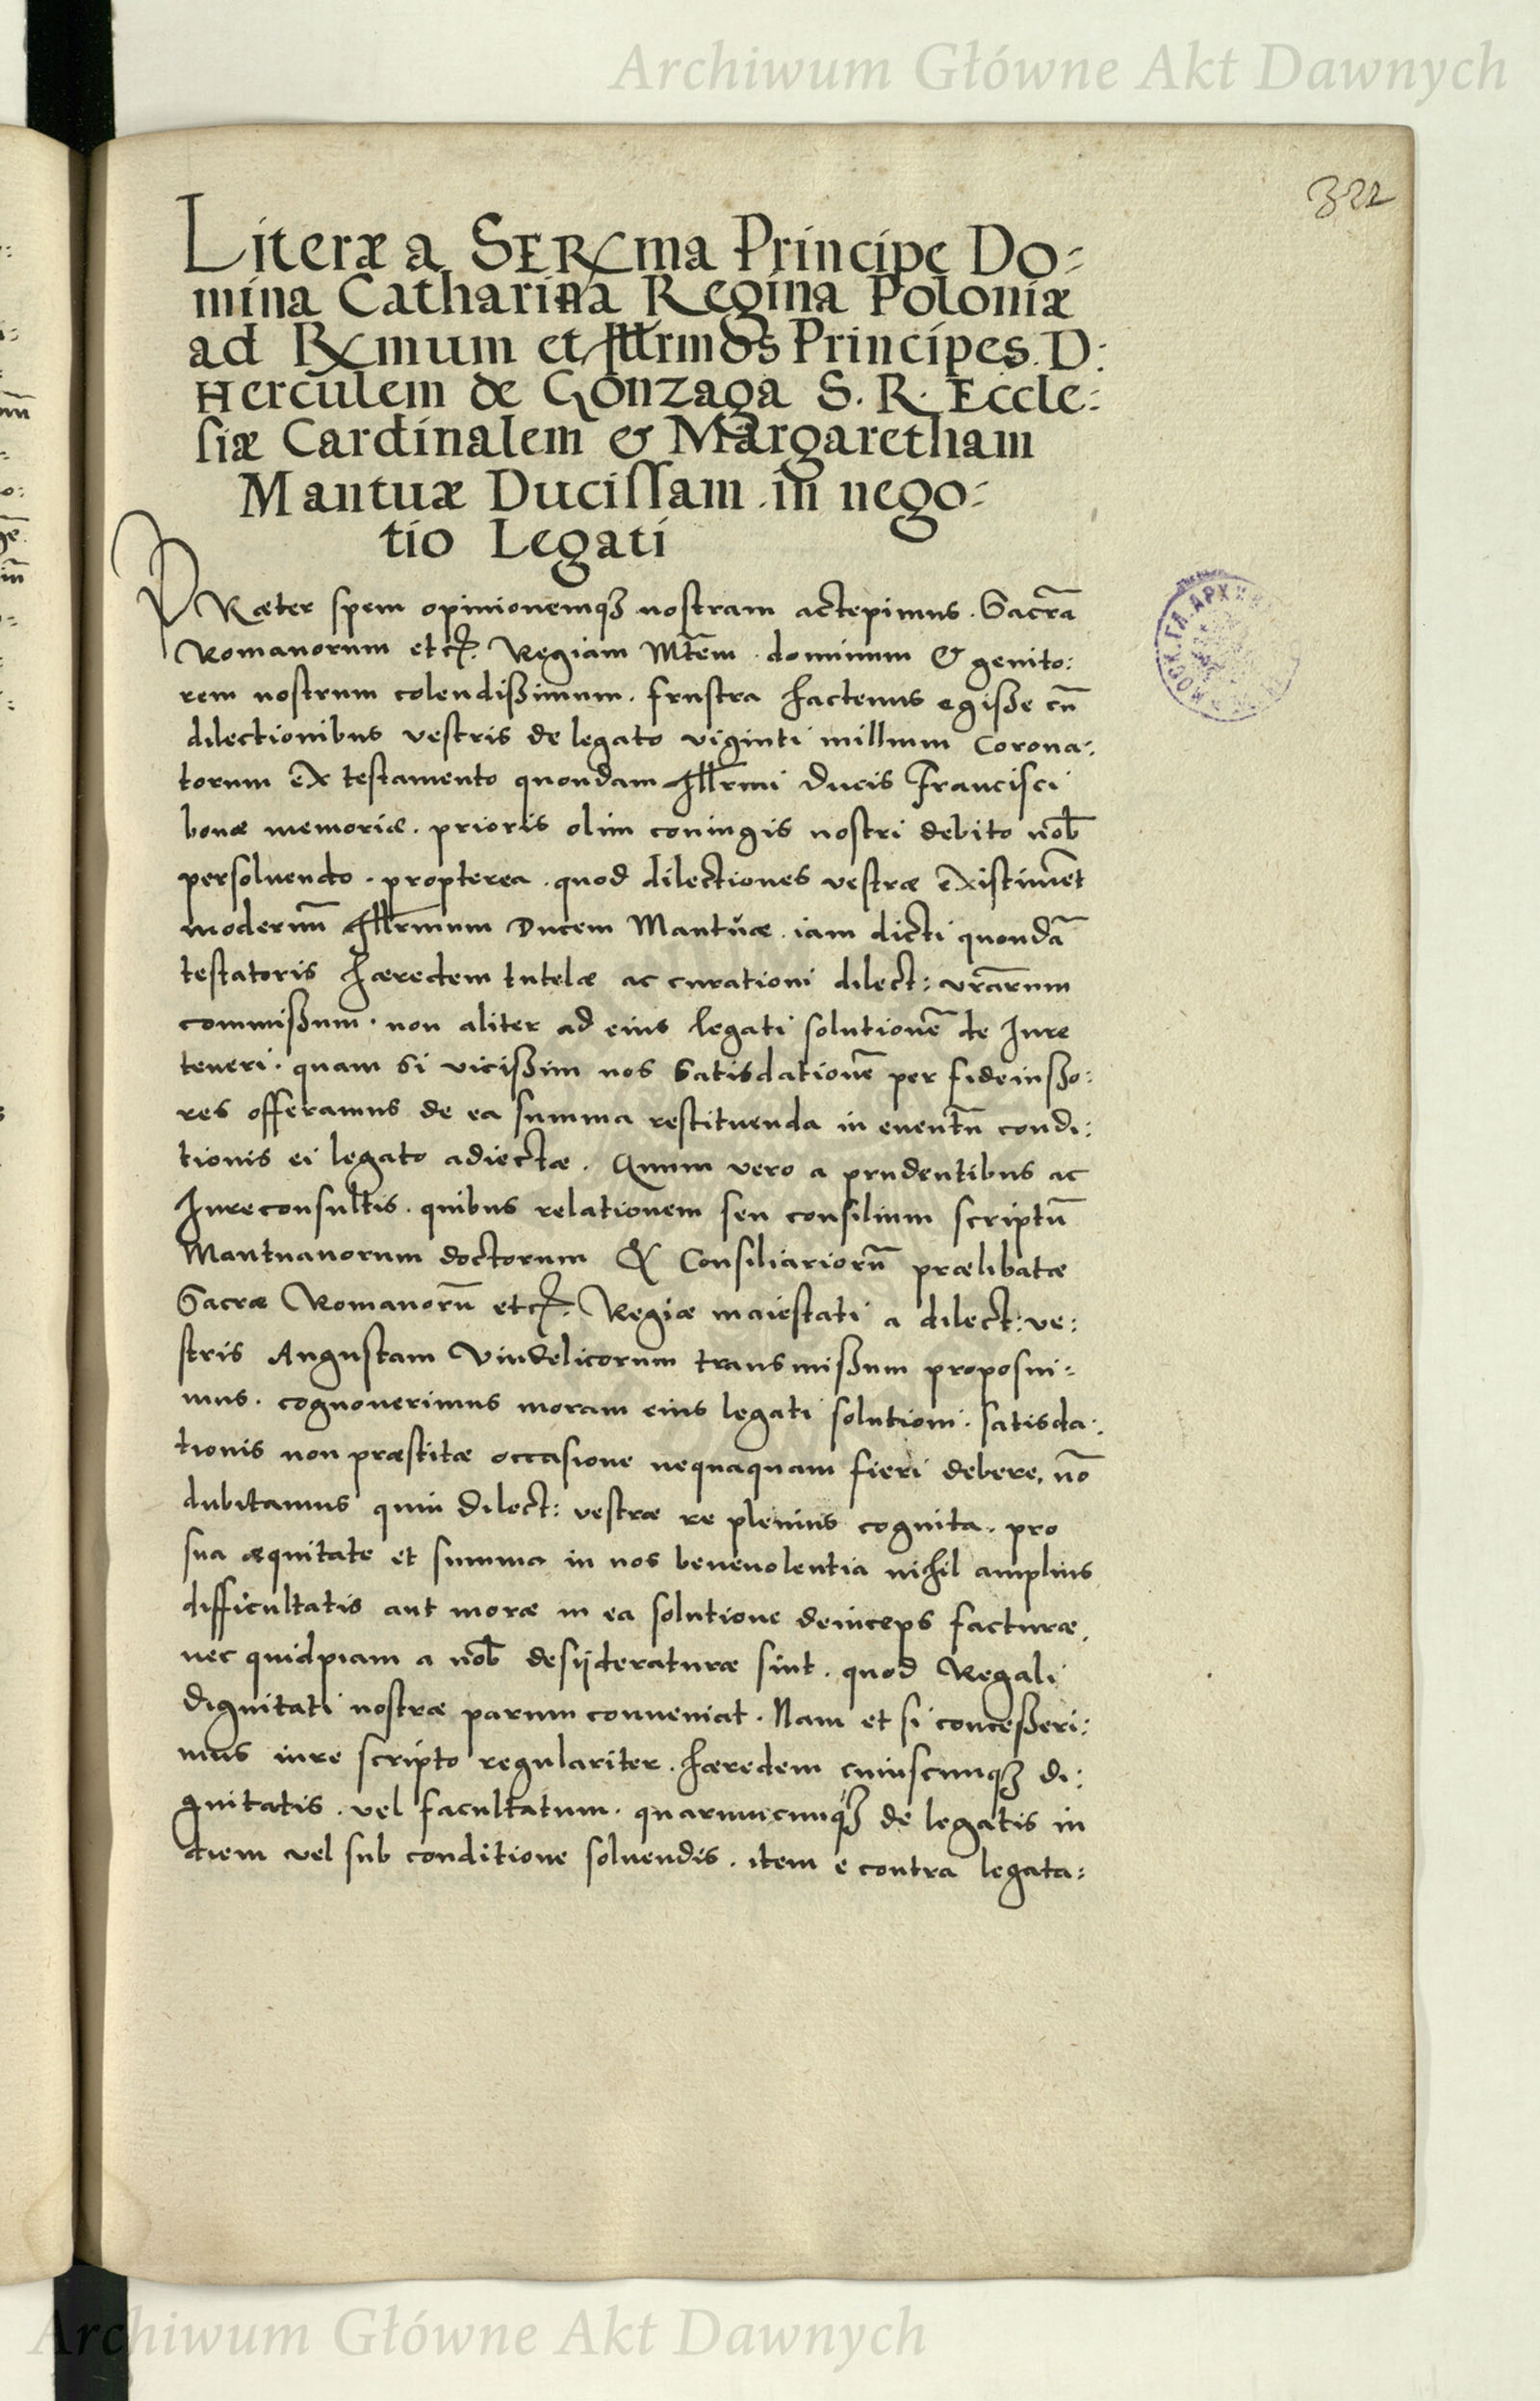 Archiwum Główne Akt Dawnych
322
Literæ a SERma Principe Do-
mina Catharina Regina Poloniæ
ad Rmum et Illrmos Principes. D:
Herculem de Gonzaga S. R. Eccle-
siæ Cardinalem & Margaretham
Mantuæ Ducissam in nego-
tio Legati
PRæter spem opinionemqꝫ nostram accepimus. Sacrã
Romanorum etc. Regiam Mtem. dominum & genito:
rem nostrum colendißimum. frustra hactenus egiße cũ
dilectionibus vestris de legato viginti millium Corona:
torum ex testamento quondam Illrmi Ducis Francisci
bonæ memoriæ. prioris olim coniugis nostri debito nob̄
persoluendo. propterea. quod dilectiones vestræ existimẽt
modernũ Illrmum Ducem Mantuæ. iam dicti quondã
testatoris hæredem tutelæ ac curationi dilect: vrãrum
commißum. non aliter ad eius legati solutionẽ de Iure
teneri. quam si vicißim nos satisdationẽ per fideiußo:
res offeramus de ea summa restituenda in euentũ condi:
tionis ei legato adiectæ. Quum vero a prudentibus ac
Iureconsultis. quibus relationem seu consilium scriptũ
Mantuanorum doctorum & Consiliariorũ prælibatæ
Sacræ Romanorũ etc. Regiæ maiestati a dilect: ve:
stris Augustam Vindelicorum transmißum proposui-
mus. cognouerimus moram eius legati solutioni. satisda:
tionis non præstitæ occasione nequaquam fieri debere. nõ
dubitamus quin dilect: vestræ re plenius cognita. pro
sua æquitate et summa in nos beneuolentia nihil amplius
difficultatis aut moræ in ea solutione deinceps facturæ.
nec quidpiam a nob̄ desijderaturæ sint. quod Regali
dignitati nostræ parum conueniat. Nam et si conceßeri:
mus iure scripto regulariter. hæredem cuiuscunqꝫ di:
gnitatis. vel facultatum. quarumcunqꝫ de legatis in
diem vel sub conditione soluendis. item e contra legata:
Archiwum Główne Akt Dawnych